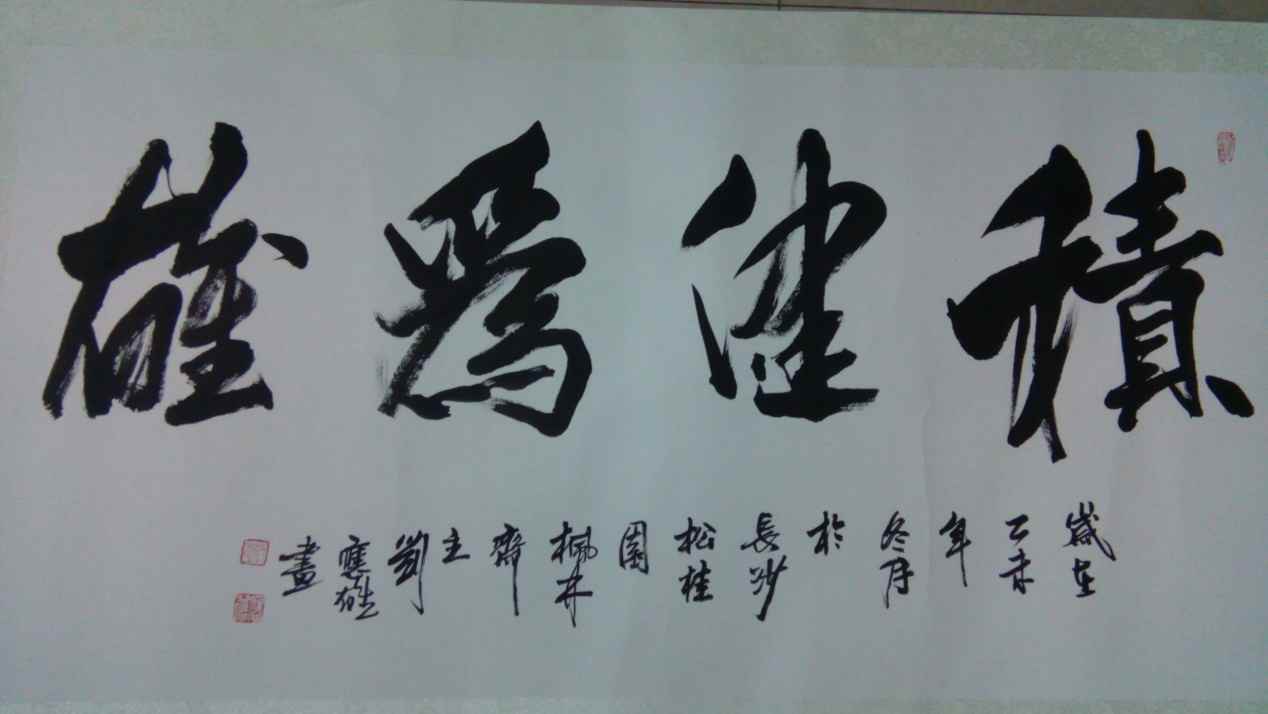 積健爲雄
歲在乙未年冬月於長沙松桂園楓井齋主劉應雄畫